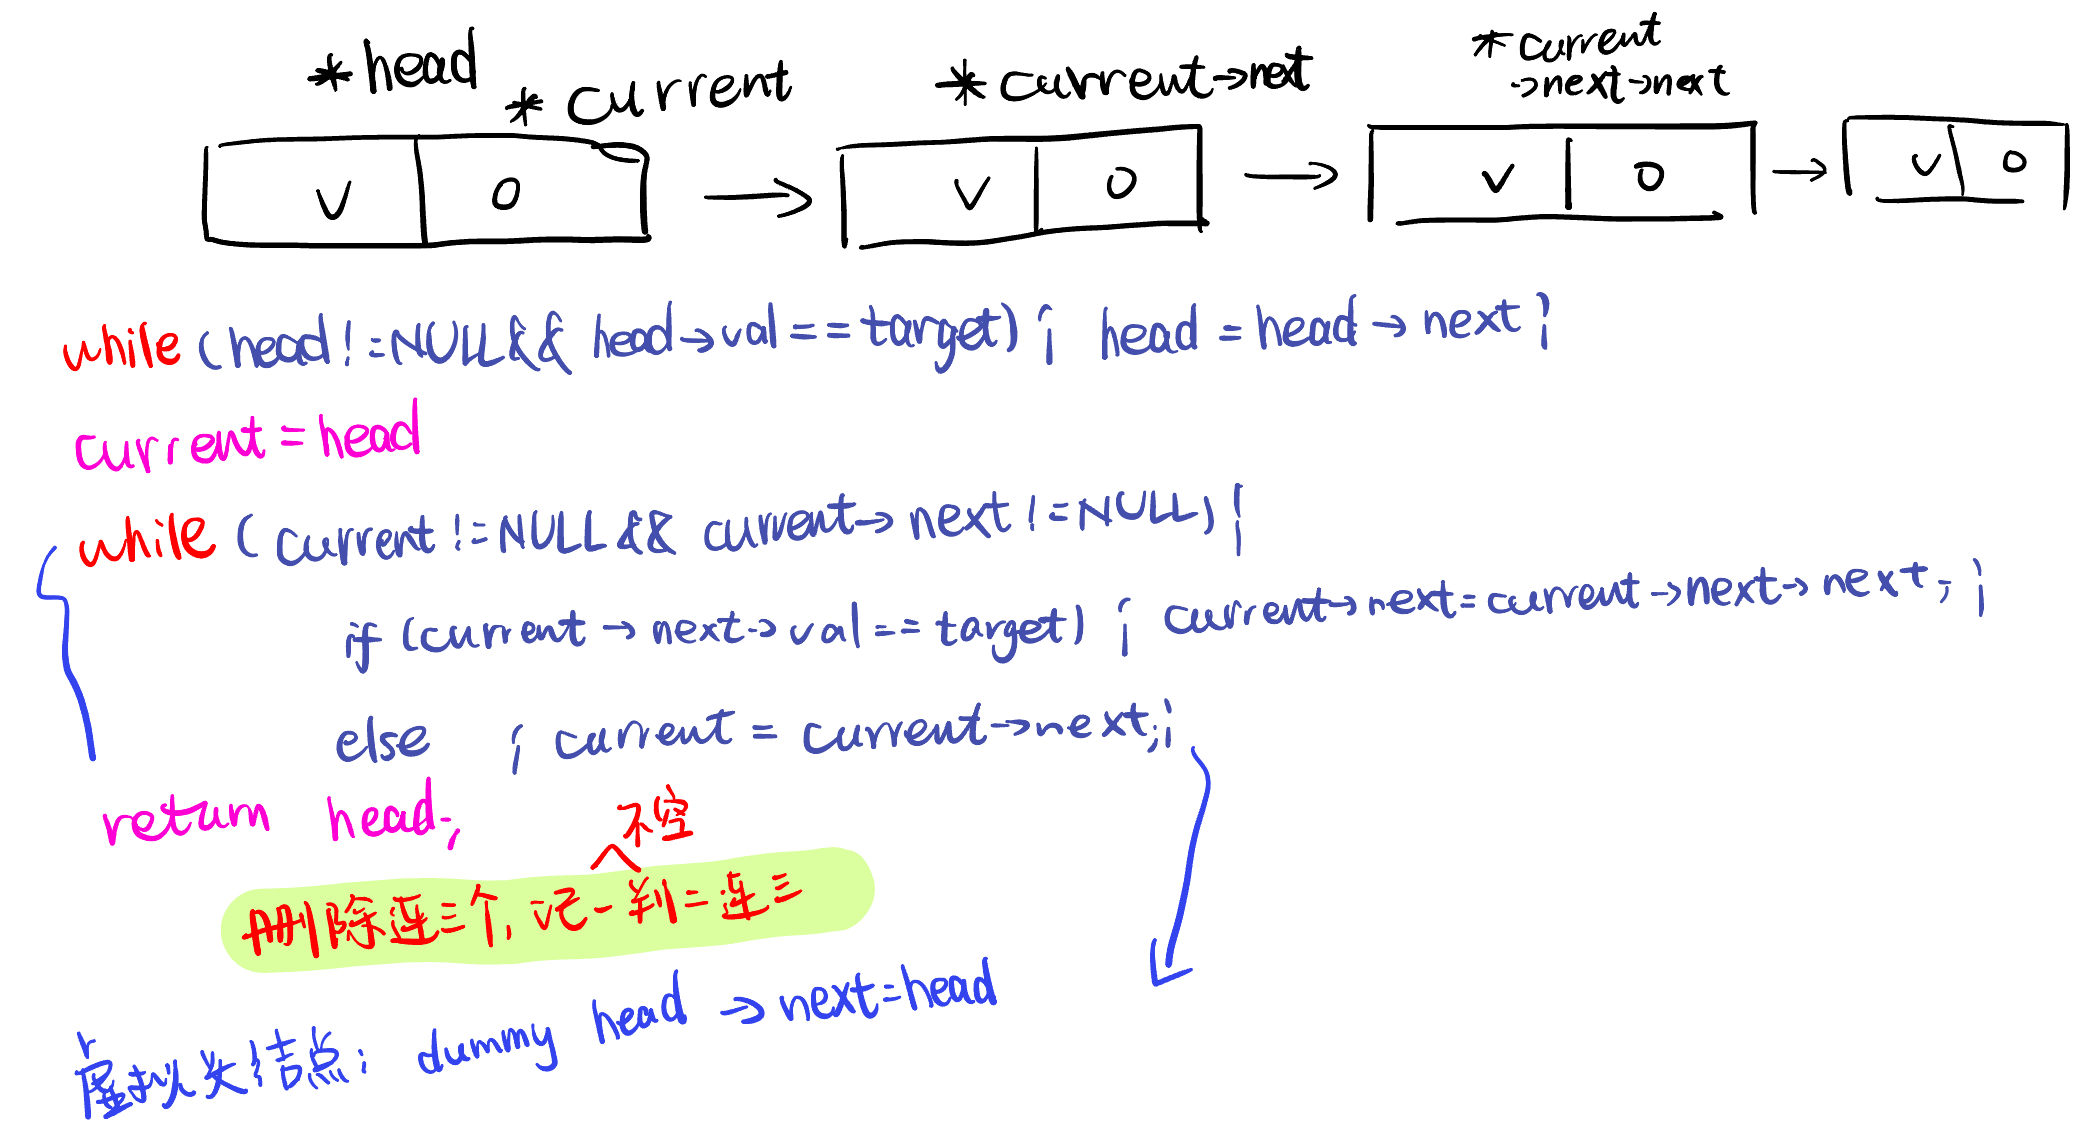 *head
* current
* current→next
* current
→next→next
v 0 → v 0 → v 0 → v 0
while (head!=NULL&& head→val==target) { head=head→next }
current=head
while (current!=NULL&& current→next!=NULL) {
if (current→next→val==target) { current→next=current→next→next; }
else { current=current→next; }
return head;
不空
删除连三个, 记一判二连三
虚拟头结点: dummy head→next=head